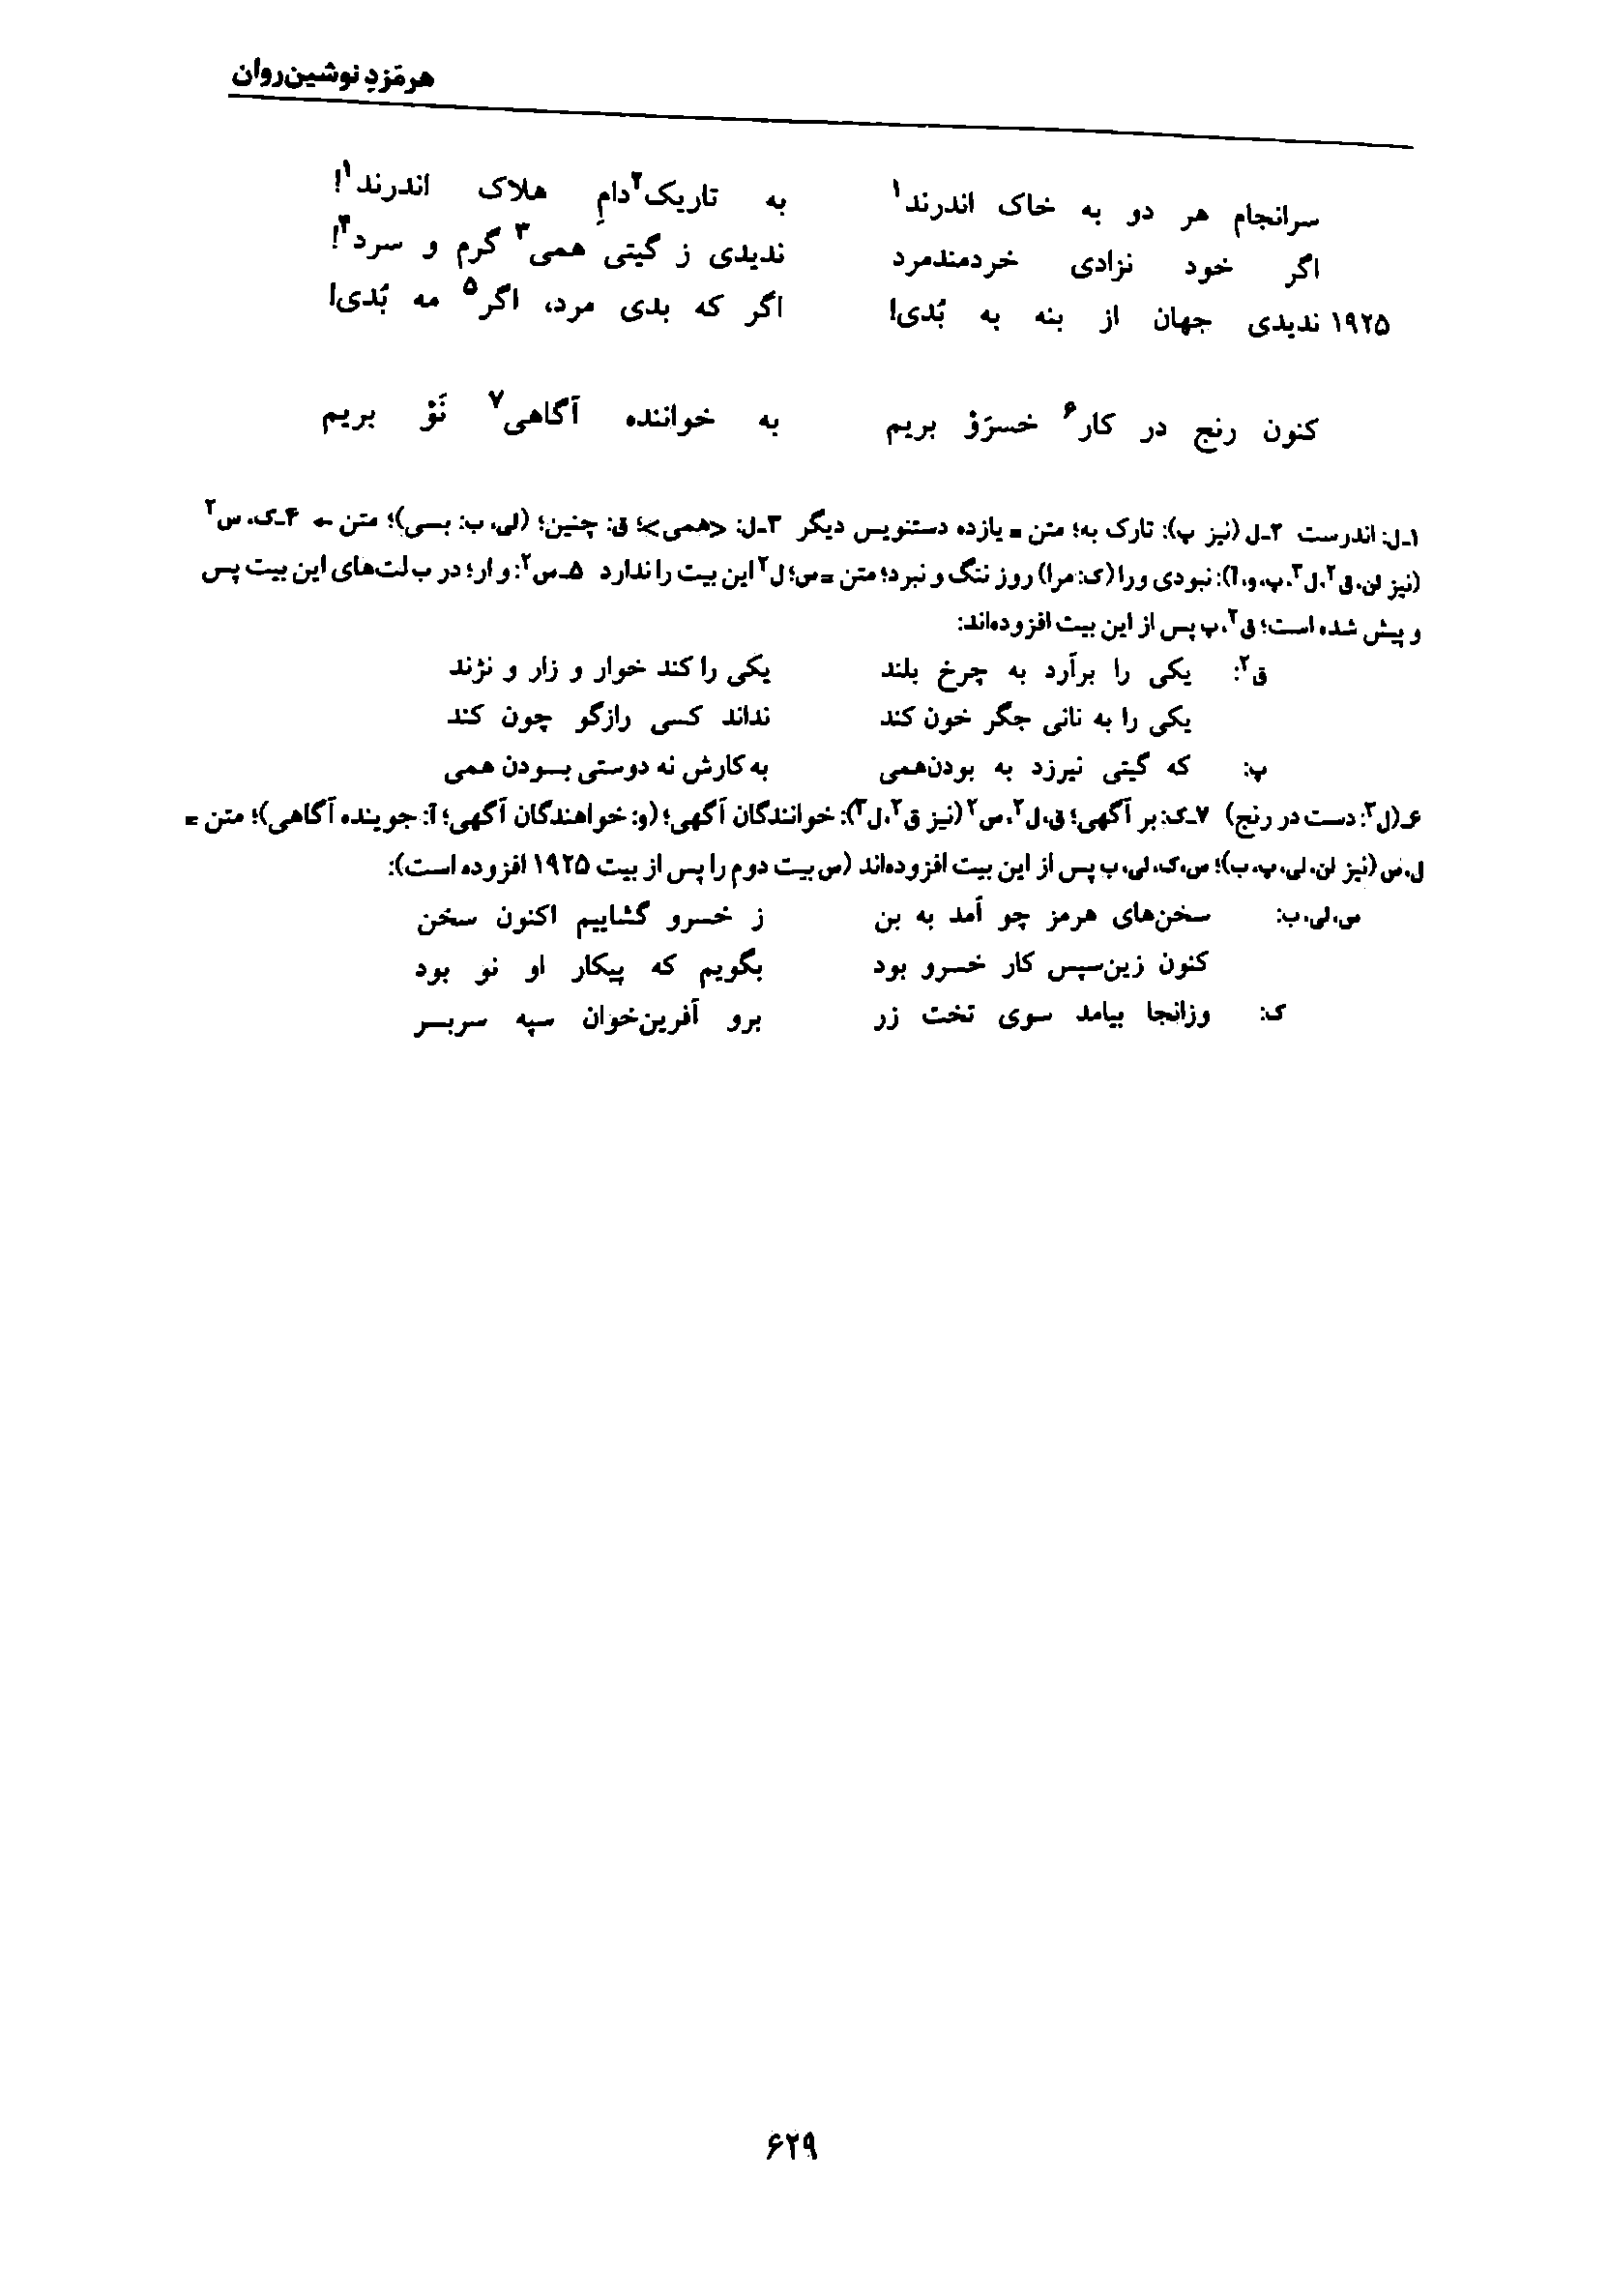 هرمَزدِ نوشین‌روان
سرانجام هر دو به خاک اندرند۱ به تاریک۲دامِ هلاک اندرند۱!
اگر خود نزادی خردمندمرد ندیدی ز گیتی همی۳ گرم و سرد۴!
۱۹۲۵ ندیدی جهان از بنه به بُدی! اگر که بدی مرد، اگر۵ مه بُدی!
کنون رنج در کار۶ خسرَوْ بریم به خواننده آگاهی۷ نَوْ بریم
۱ـ ل: اندرست ۲ـ ل (نیز پ): تارک به؛ متن = یازده دستنویس دیگر ۳ـ ل: <همی>؛ ق: چنین؛ (لی، ب: بسی)؛ متن ← ۴ـ ک، س۲
(نیز لن، ق۲، ل۳، پ، و، آ): نبودی ورا (ک: مرا) روز ننگ و نبرد؛ متن = س؛ ل۲ این بیت را ندارد ۵ـ س۲: و ار؛ در ب لت‌های این بیت پس
و پیش شده است؛ ق۲، پ پس از این بیت افزوده‌اند:
ق۲: یکی را برآرد به چرخ بلند یکی را کند خوار و زار و نژند
یکی را به نانی جگر خون کند نداند کسی رازگو چون کند
پ: که گیتی نیرزد به بودن‌همی به کارش نه دوستی بسودن همی
۶ـ (ل۳: دست در رنج) ۷ـ ک: بر آگهی؛ ق، ل۲، س۲ (نیز ق۲، ل۳): خوانندگان آگهی؛ (و: خواهندگان آگهی؛ آ: جوینده آگاهی)؛ متن =
ل، س (نیز لن، لی، پ، ب)؛ س، ک، لی، ب پس از این بیت افزوده‌اند (س بیت دوم را پس از بیت ۱۹۲۵ افزوده است):
س، لی، ب: سخن‌های هرمز چو آمد به بن ز خسرو گشاییم اکنون سخن
کنون زین‌سپس کار خسرو بود بگویم که پیکار او نو بود
ک: وزانجا بیامد سوی تخت زر برو آفرین‌خوان سپه سربسر
۶۲۹